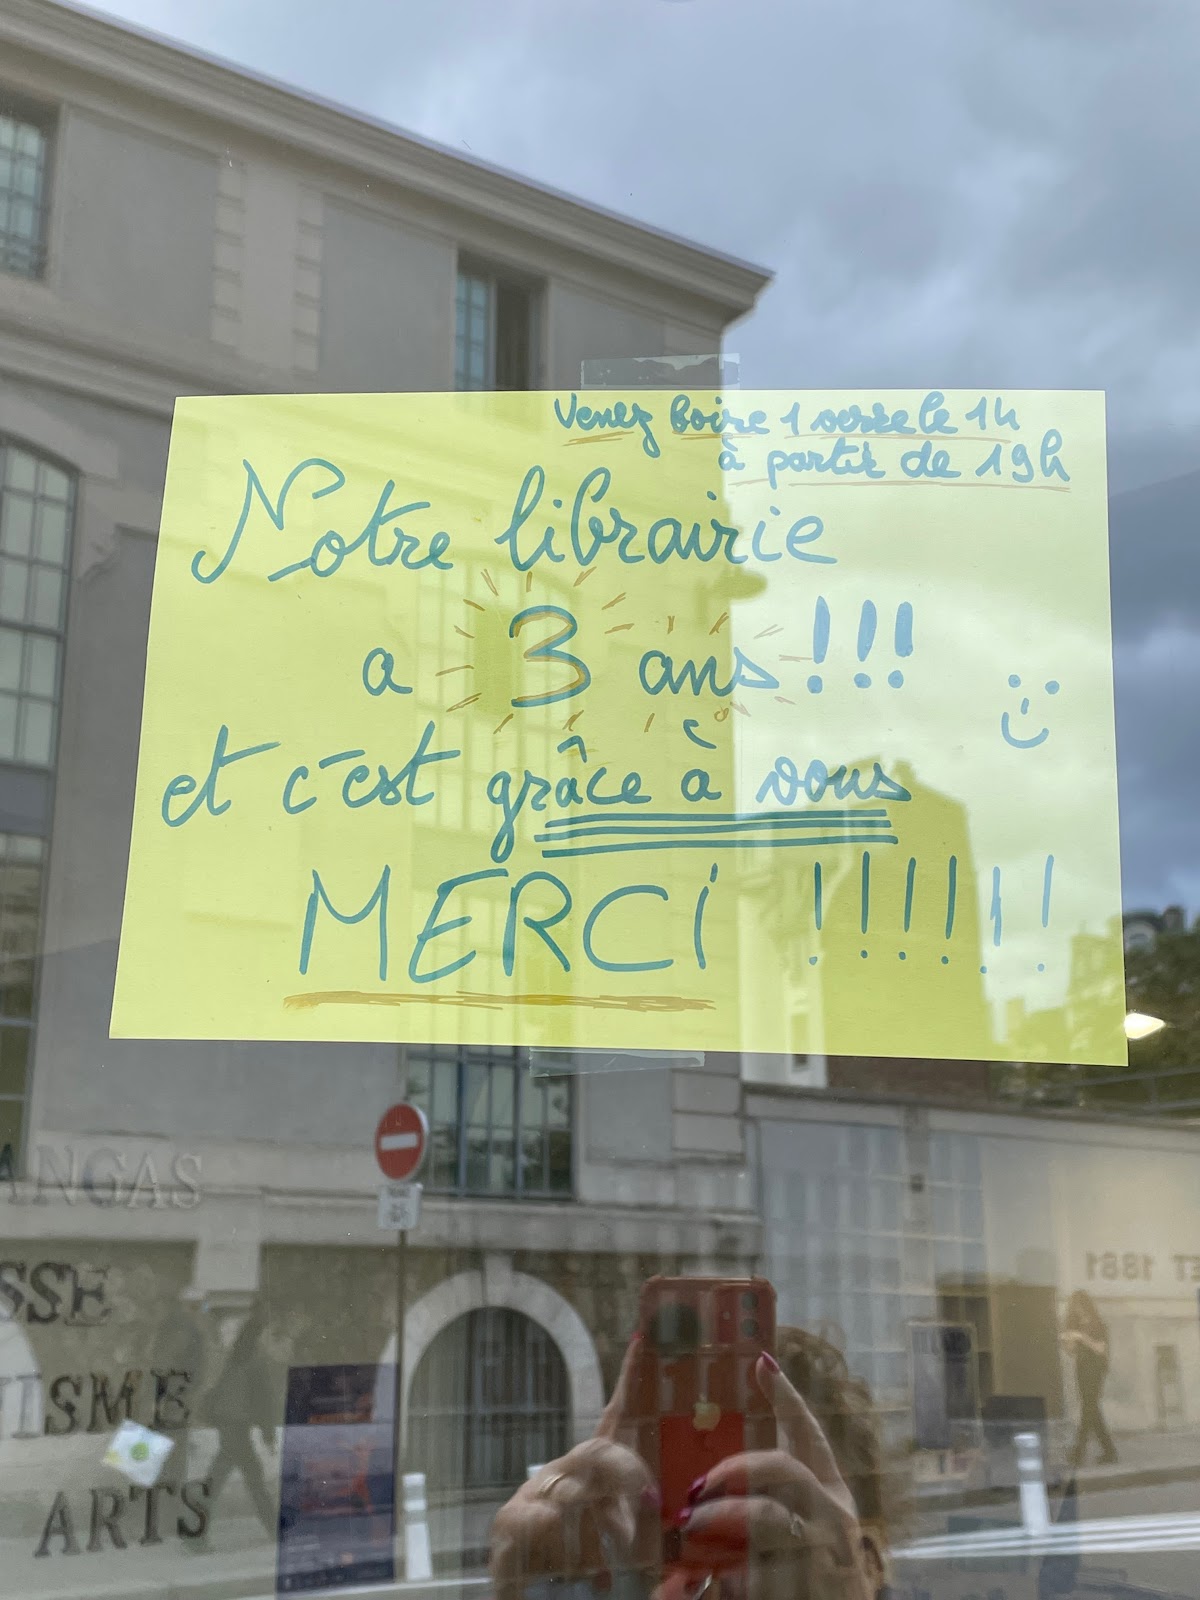 Venez boire 1 verre le 14
à partir de 19h
Notre librairie
a 3 ans !!!
et c'est grâce à vous
MERCI !!!!!!
ANGAS
SSE
ISME
ARTS
ET 1881